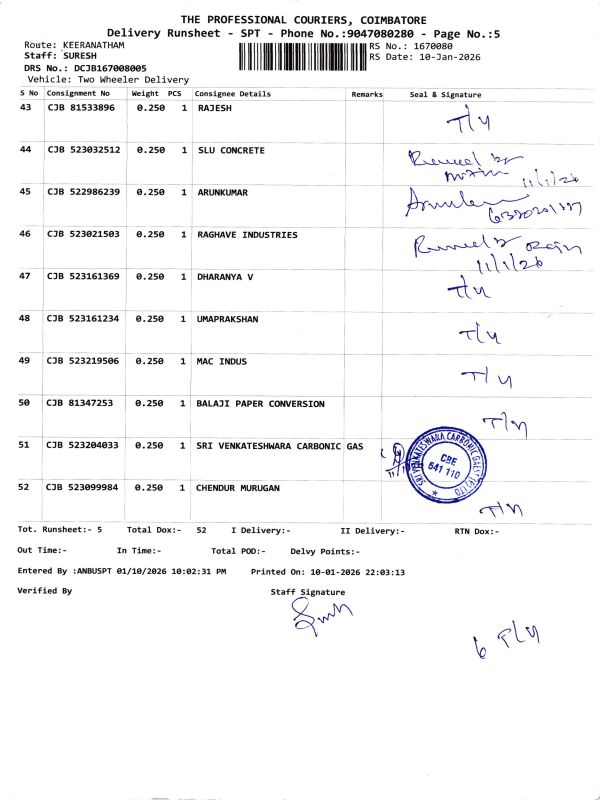 THE PROFESSIONAL COURIERS, COIMBATORE
Delivery Runsheet - SPT - Phone No.:9047080280 - Page No.:5
Route: KEERANATHAM RS No.: 1670080
Staff: SURESH RS Date: 10-Jan-2026
DRS No.: DCJB167008005
Vehicle: Two Wheeler Delivery
S No Consignment No Weight PCS Consignee Details Remarks Seal & Signature
43 CJB 81533896 0.250 1 RAJESH T/4
44 CJB 523032512 0.250 1 SLU CONCRETE Received by
11/1/26
45 CJB 522986239 0.250 1 ARUNKUMAR
46 CJB 523021503 0.250 1 RAGHAVE INDUSTRIES Received by
11/1/26
47 CJB 523161369 0.250 1 DHARANYA V T/4
48 CJB 523161234 0.250 1 UMAPRAKSHAN T/4
49 CJB 523219506 0.250 1 MAC INDUS T/4
50 CJB 81347253 0.250 1 BALAJI PAPER CONVERSION T/4
51 CJB 523204033 0.250 1 SRI VENKATESHWARA CARBONIC GAS
SRI VENKATESHWARA CARBONIC GASES (P) LTD
CBE
641 110
52 CJB 523099984 0.250 1 CHENDUR MURUGAN T/4
Tot. Runsheet:- 5 Total Dox:- 52 I Delivery:- II Delivery:- RTN Dox:-
Out Time:- In Time:- Total POD:- Delvy Points:-
Entered By :ANBUSPT 01/10/2026 10:02:31 PM Printed On: 10-01-2026 22:03:13
Verified By Staff Signature
6 T/4